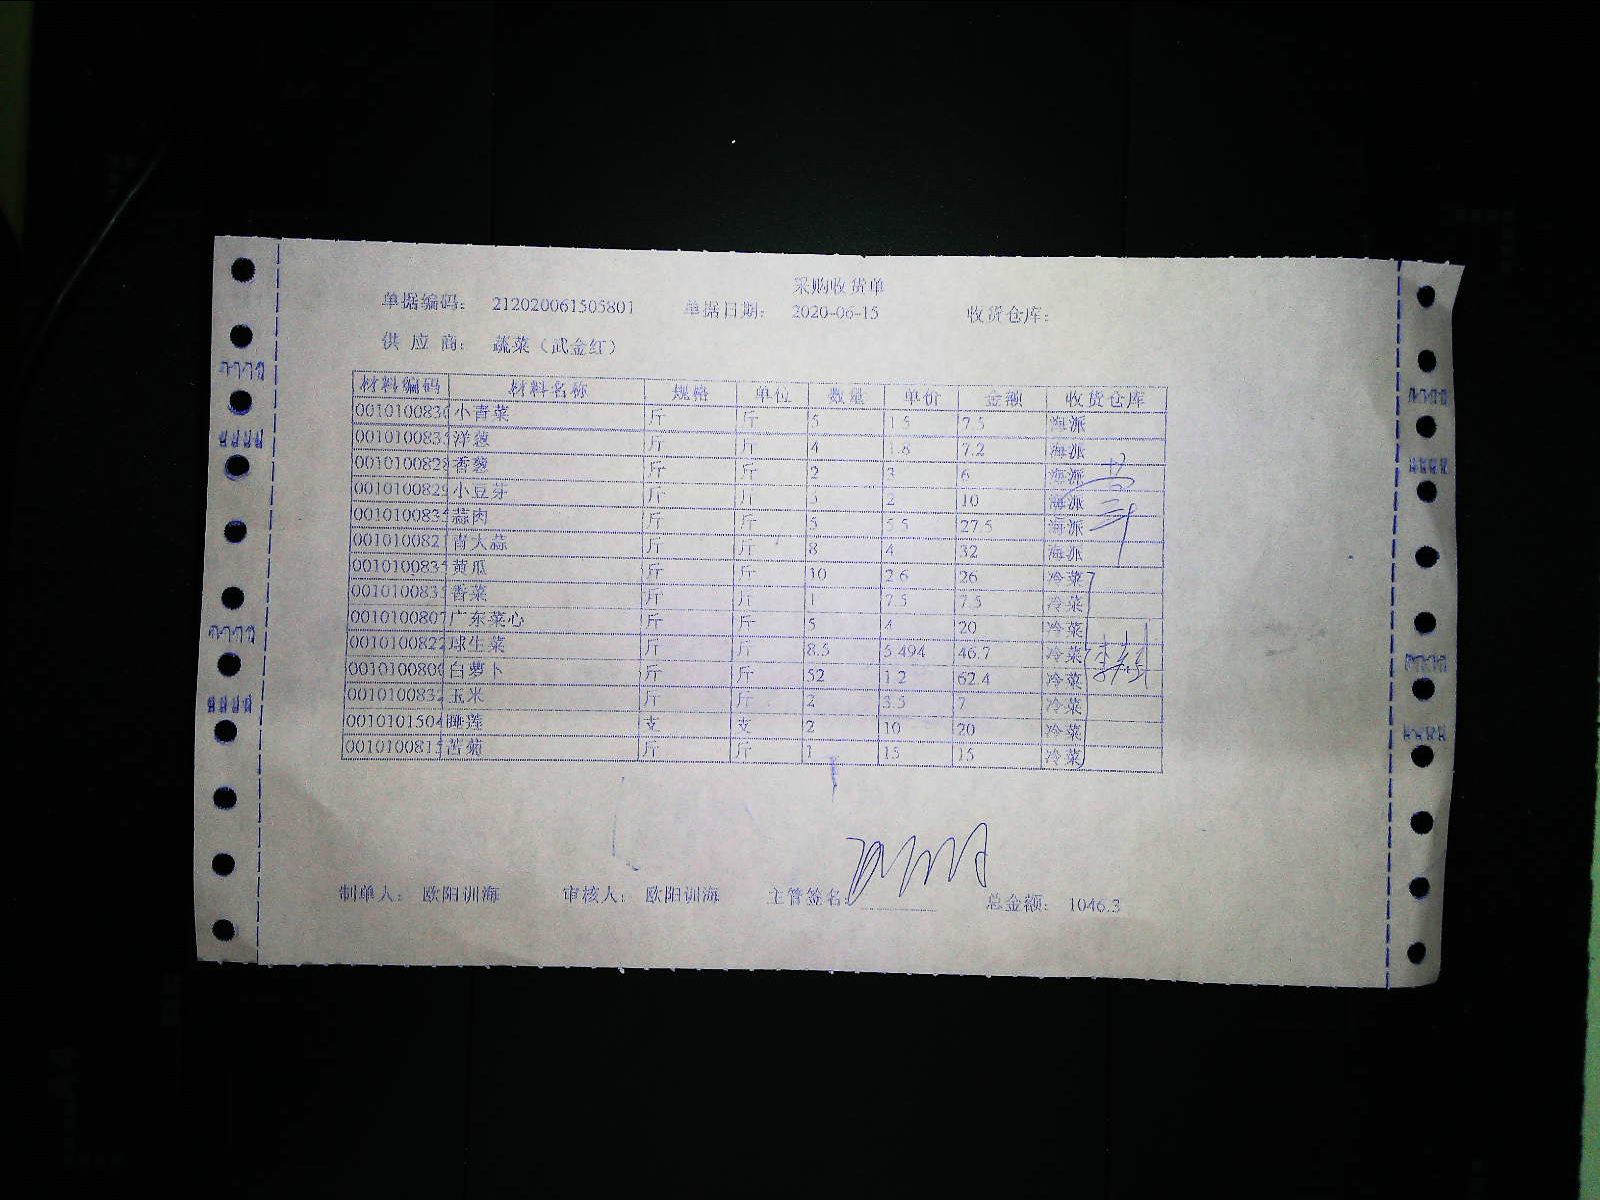 采购收货单
单据编码： 212020061505801 单据日期： 2020-06-15 收货仓库：
供 应 商： 蔬菜（武金红）
材料编码 材料名称 规格 单位 数量 单价 金额 收货仓库
001010083 小青菜 斤 斤 5 1.5 7.5 海派
001010083 洋葱 斤 斤 4 1.8 7.2 海派
001010082 香葱 斤 斤 2 3 6 海派
001010082 小豆芽 斤 斤 5 2 10 海派
001010083 蒜肉 斤 斤 5 5.5 27.5 海派
001010082 青大蒜 斤 斤 8 4 32 海派
001010083 黄瓜 斤 斤 10 2.6 26 冷菜
001010083 香菜 斤 斤 1 7.5 7.5 冷菜
001010080 广东菜心 斤 斤 5 4 20 冷菜
001010082 球生菜 斤 斤 8.5 5.494 46.7 冷菜
001010080 白萝卜 斤 斤 52 1.2 62.4 冷菜
001010083 玉米 斤 斤 2 3.5 7 冷菜
001010150 睡莲 支 支 2 10 20 冷菜
001010081 苦菊 斤 斤 1 15 15 冷菜
制单人： 欧阳训海 审核人： 欧阳训海 主管签名： 总金额： 1046.3